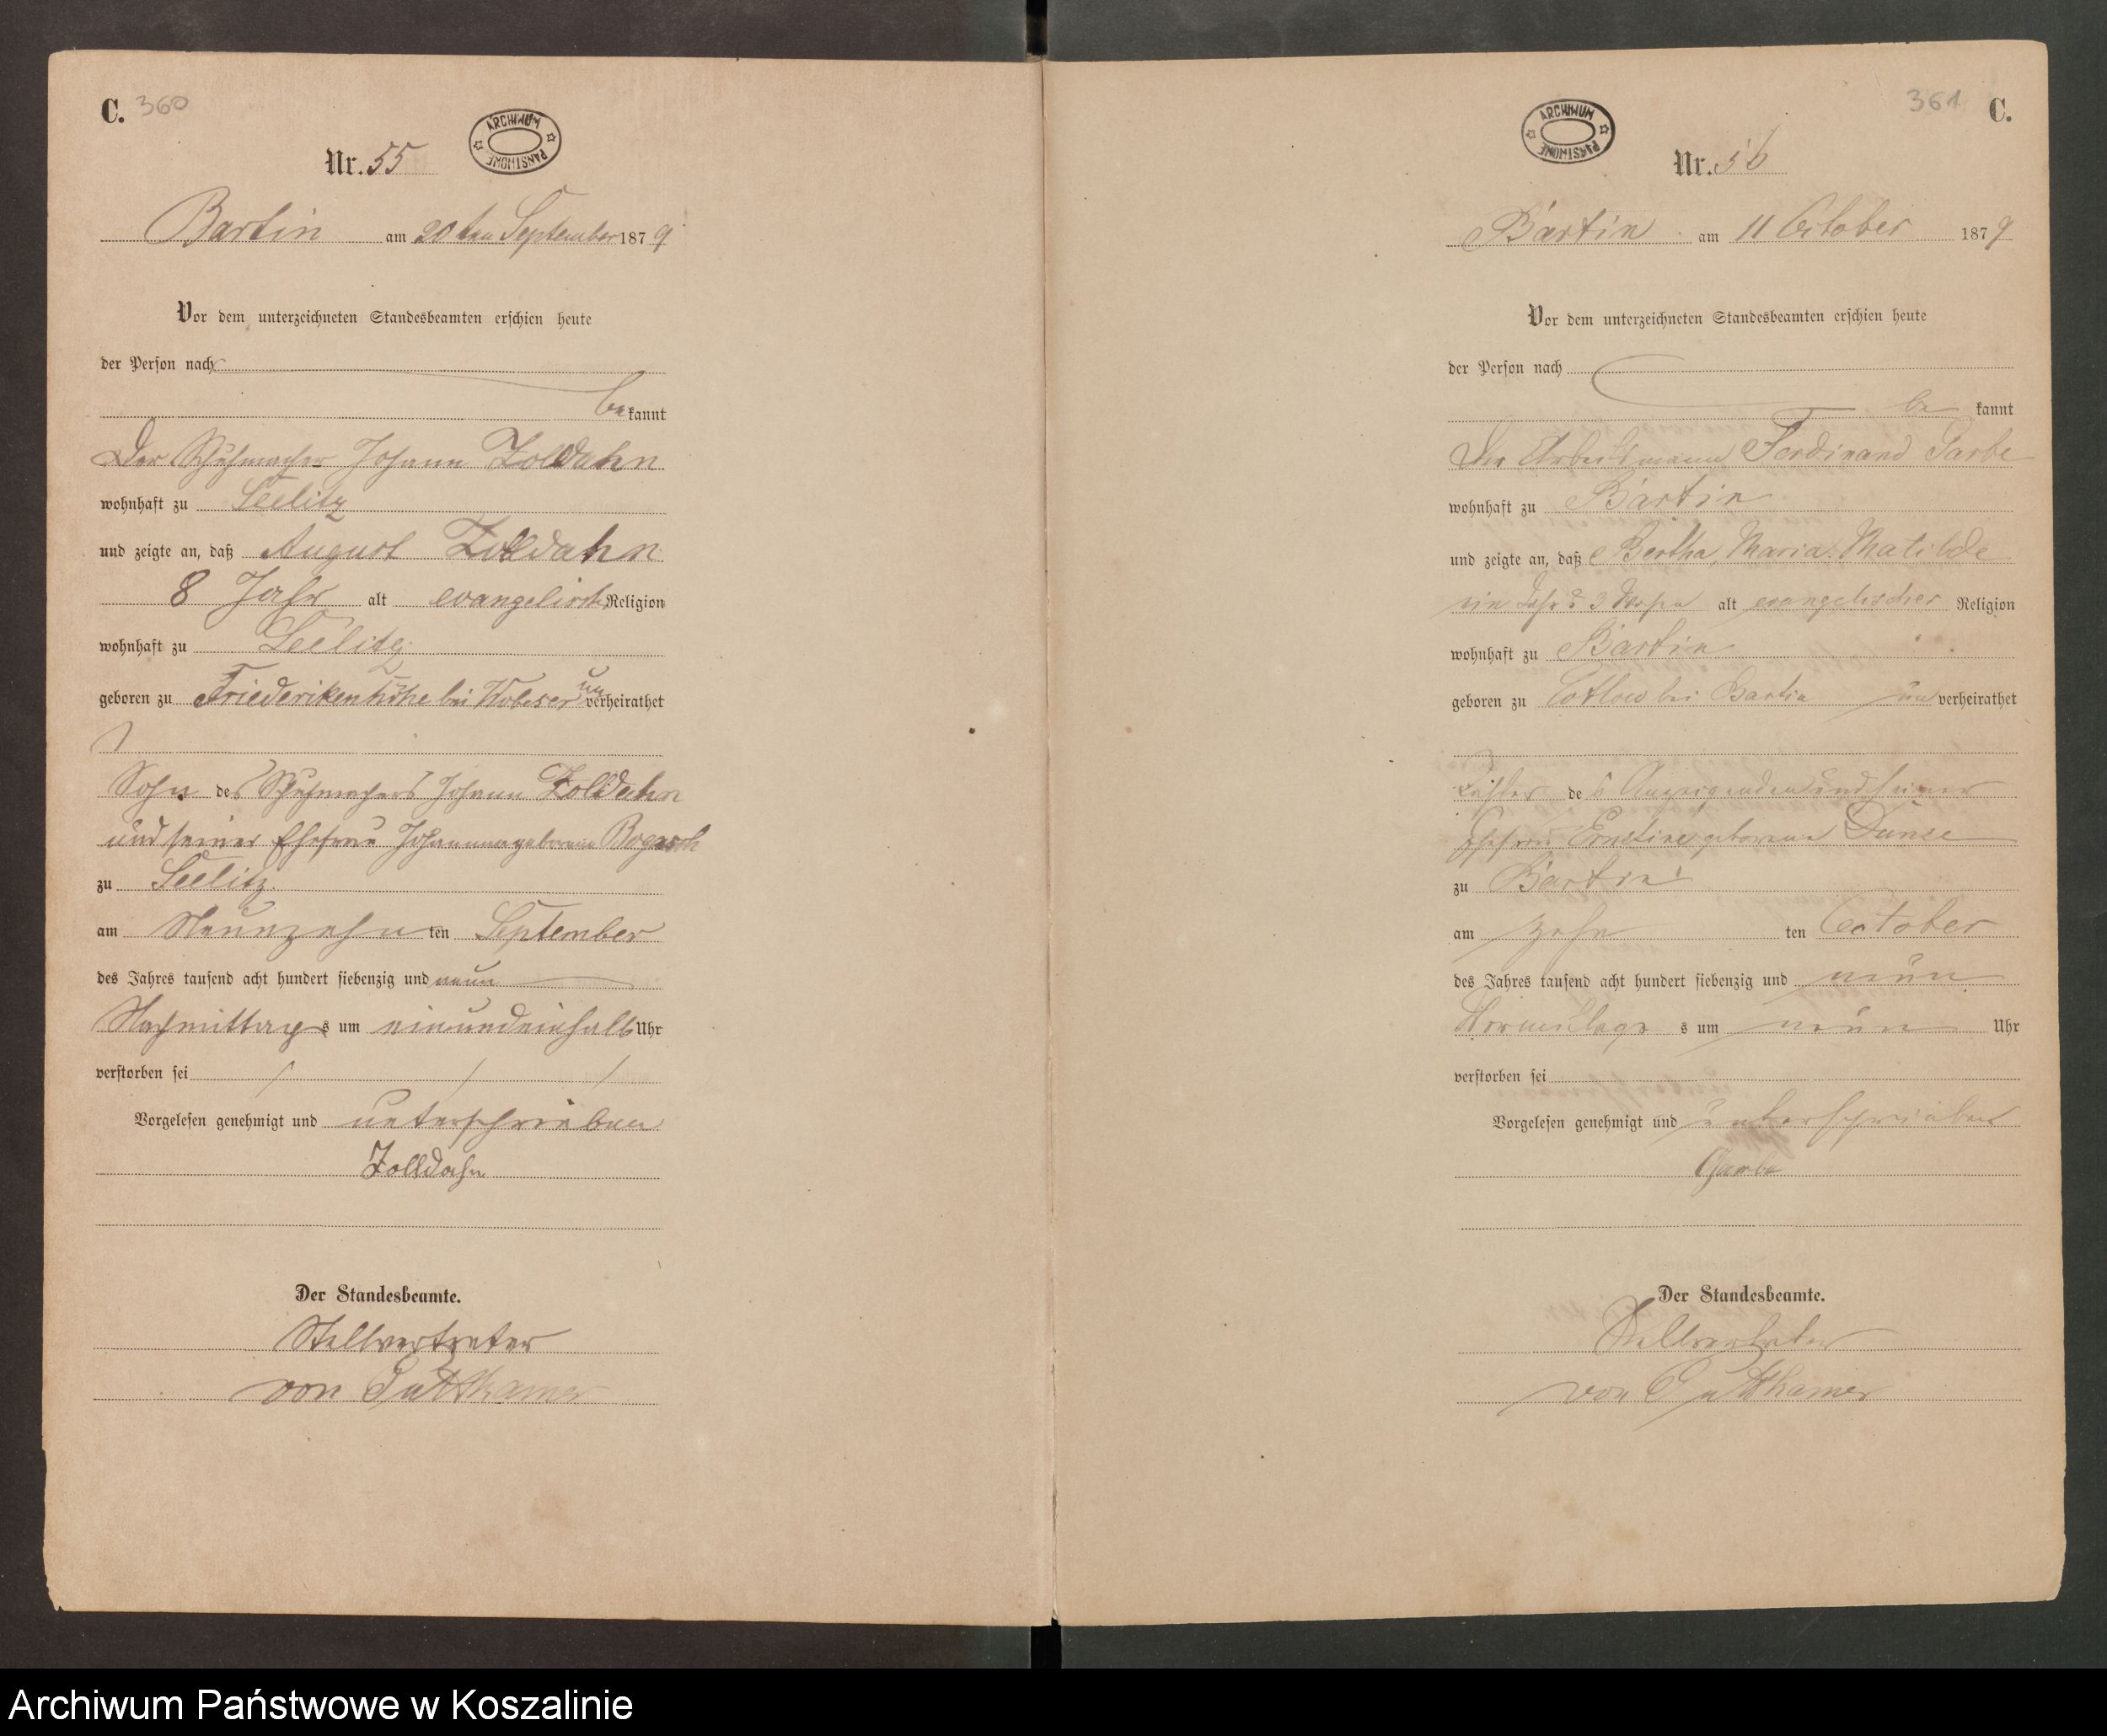 C. 360
ARCHIWUM PAŃSTWOWE
Nr. 55
Bartin am 20ten September 1879
Vor dem unterzeichneten Standesbeamten erschien heute
der Person nach
bekannt
Der Schuhmacher Johann Zolldahn
wohnhaft zu Seelitz
und zeigte an, daß August Zolldahn
8 Jahr alt evangelischer Religion
wohnhaft zu Seelitz
geboren zu Friederikenhöhe bei Wobeser unverheirathet
Sohn des Schuhmachers Johann Zolldahn
und seiner Ehefrau Johanna geborene
zu Seelitz
am Neunzehnten September
des Jahres tausend acht hundert siebenzig und neun
Nachmittags um einundeinhalb Uhr
verstorben sei
Vorgelesen genehmigt und unterschrieben
Zolldahn
Der Standesbeamte.
Stellvertreter
von Puttkamer
361 C.
ARCHIWUM PAŃSTWOWE
Nr. 56
Bartin am 11 October 1879
Vor dem unterzeichneten Standesbeamten erschien heute
der Person nach
bekannt
Der Arbeitsmann Ferdinand Garbe
wohnhaft zu Bartin
und zeigte an, daß Bertha, Maria Matilde
ein Jahr 3 alt evangelischer Religion
wohnhaft zu Bartin
geboren zu bei Bartin unverheirathet
Tochter des Anzeigenden und seiner
Ehefrau Ernstine geborene
zu Bartin
am zehnten October
des Jahres tausend acht hundert siebenzig und neun
Vormittags um neun Uhr
verstorben sei
Vorgelesen genehmigt und unterschrieben
Garbe
Der Standesbeamte.
Stellvertreter
von Puttkamer
Archiwum Państwowe w Koszalinie